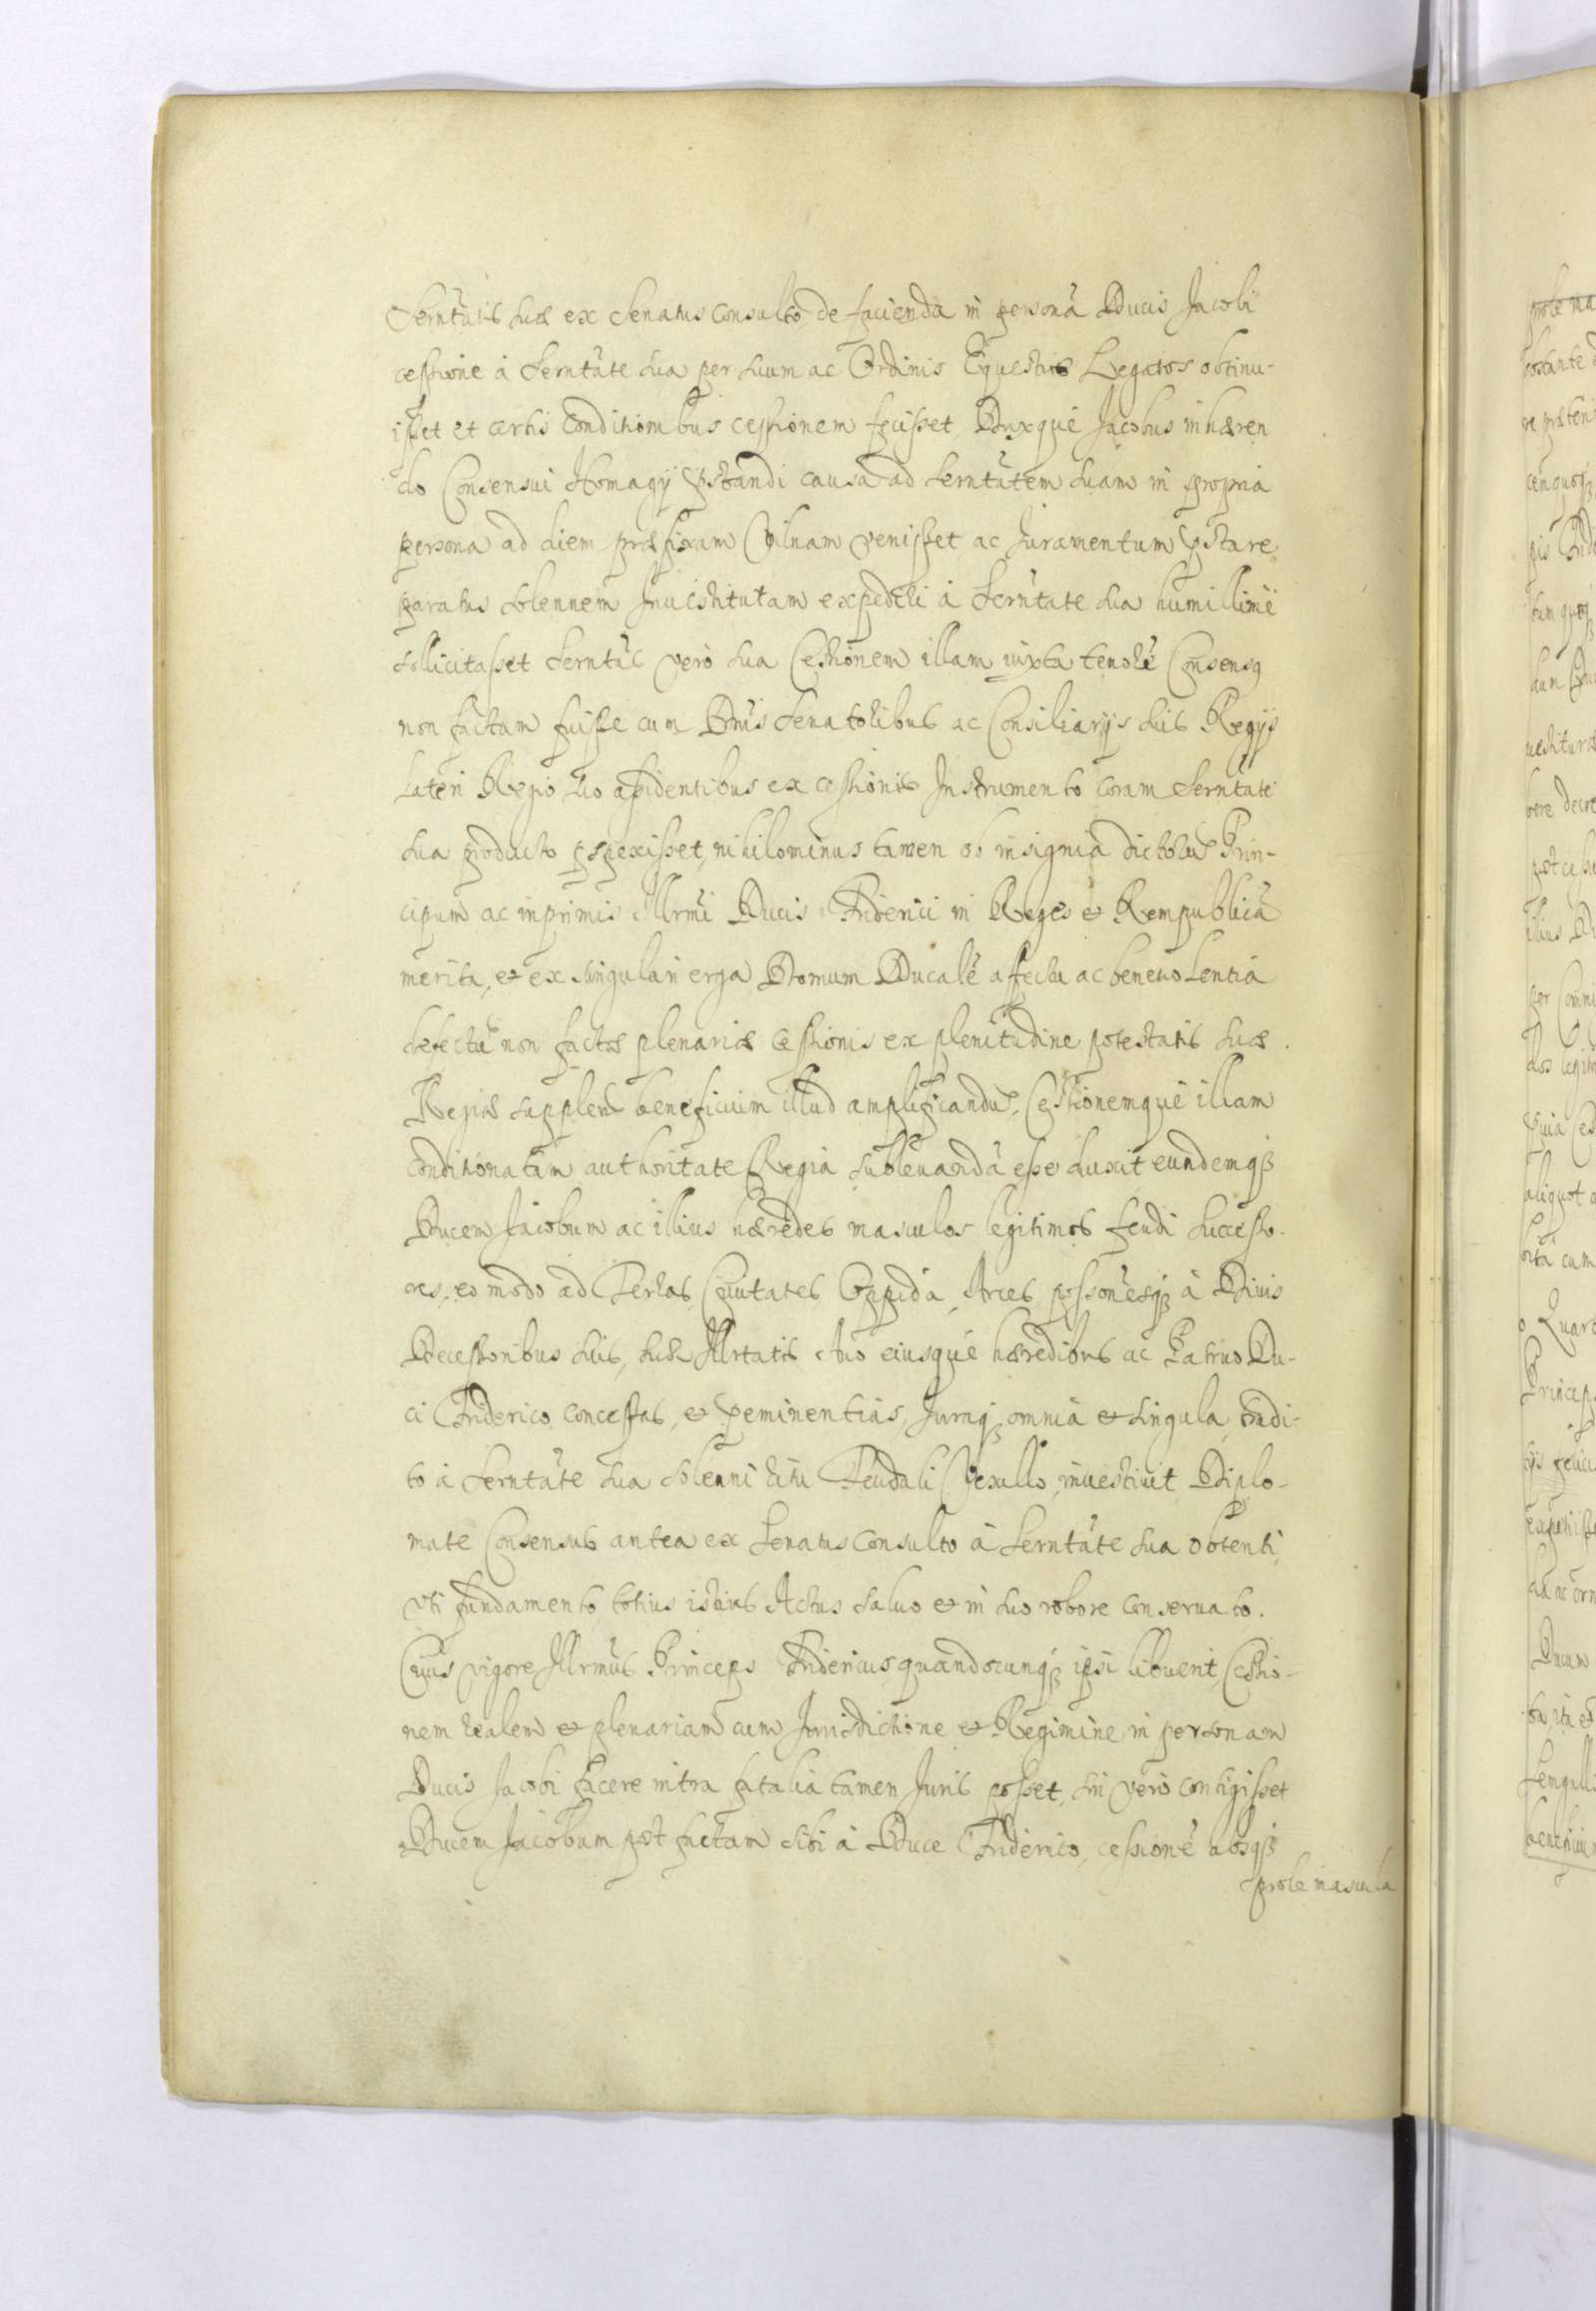 Serntatis suæ ex Senatus consulto de facienda in personã Ducis Jacobi
cessione à Serntãte sua per suum ac Ordinis Equestris Legatos obtinu-
isset et certis conditionibus cessionem fecisset, Duxque Jacobus inhæren
do Consensui Homagÿ pstandi causa ad Serntãtem suam in propria
persona ad diem præfixam Vilnam venisset ac Juramentum pstare
paratus solennem Inuestituram expediri à Serntate sua humillime
sollicitasset Serntãs verò sua Cessionem illam iuxta tenorẽ Consensq
non factam fuisse cum Dnis Senatoribus ac Consiliarÿs suis Regÿs
Lateri Regio suo assidentibus ex cessionis Instrumento coram Serntate
sua producto pspexisset, nihilominus tamen ob insignia dictorum Prin-
cipum ac inprimis Illrmi Ducis Friderici in Reges et Rempublicã
merita, et ex singulari erga Domum Ducalẽ affectu ac beneuolentia
defectũ non factæ plenariæ cessionis ex plenitudine potestatis suæ
Regiæ supplens beneficium illud amplificandũ, Cessionemque illam
conditionatam authoritate Regia subleuandã esse duxit eundemqꝫ
Ducem Jacobum ac illius hæredes masculos legitimos feudi successo-
res, eo modo ad Terras, Ciuitates Oppida, Arces, possonẽsqꝫ à Diuis
Decessoribus suis, suæ Illrtatis Auo eiusque hæredibus ac Patruo Du-
ci Friderico concessas, et peminentias, Juraqꝫ omnia et singula, tradi-
to à Serntãte sua solenni ritu Feudali Vexillo, inuestiuit Diplo-
mate Consensus antea ex Senatus consulto à Serntãte sua obtenti,
vti fundamento totius istius Actus saluo et in suo robore conseruato.
Cuius vigore Illrmus Princeps Fridericus quandocunqꝫ ipsi libuerit, Cessio-
nem realem et plenariam cum Jurisdictione et Regimine in personam
Ducis Jacobi facere intra fatalia tamen Juris posset, sin verò contigisset
Ducem Jacobum post factam sibi à Duce Friderico, cessionẽ absqꝫ
prole mascula